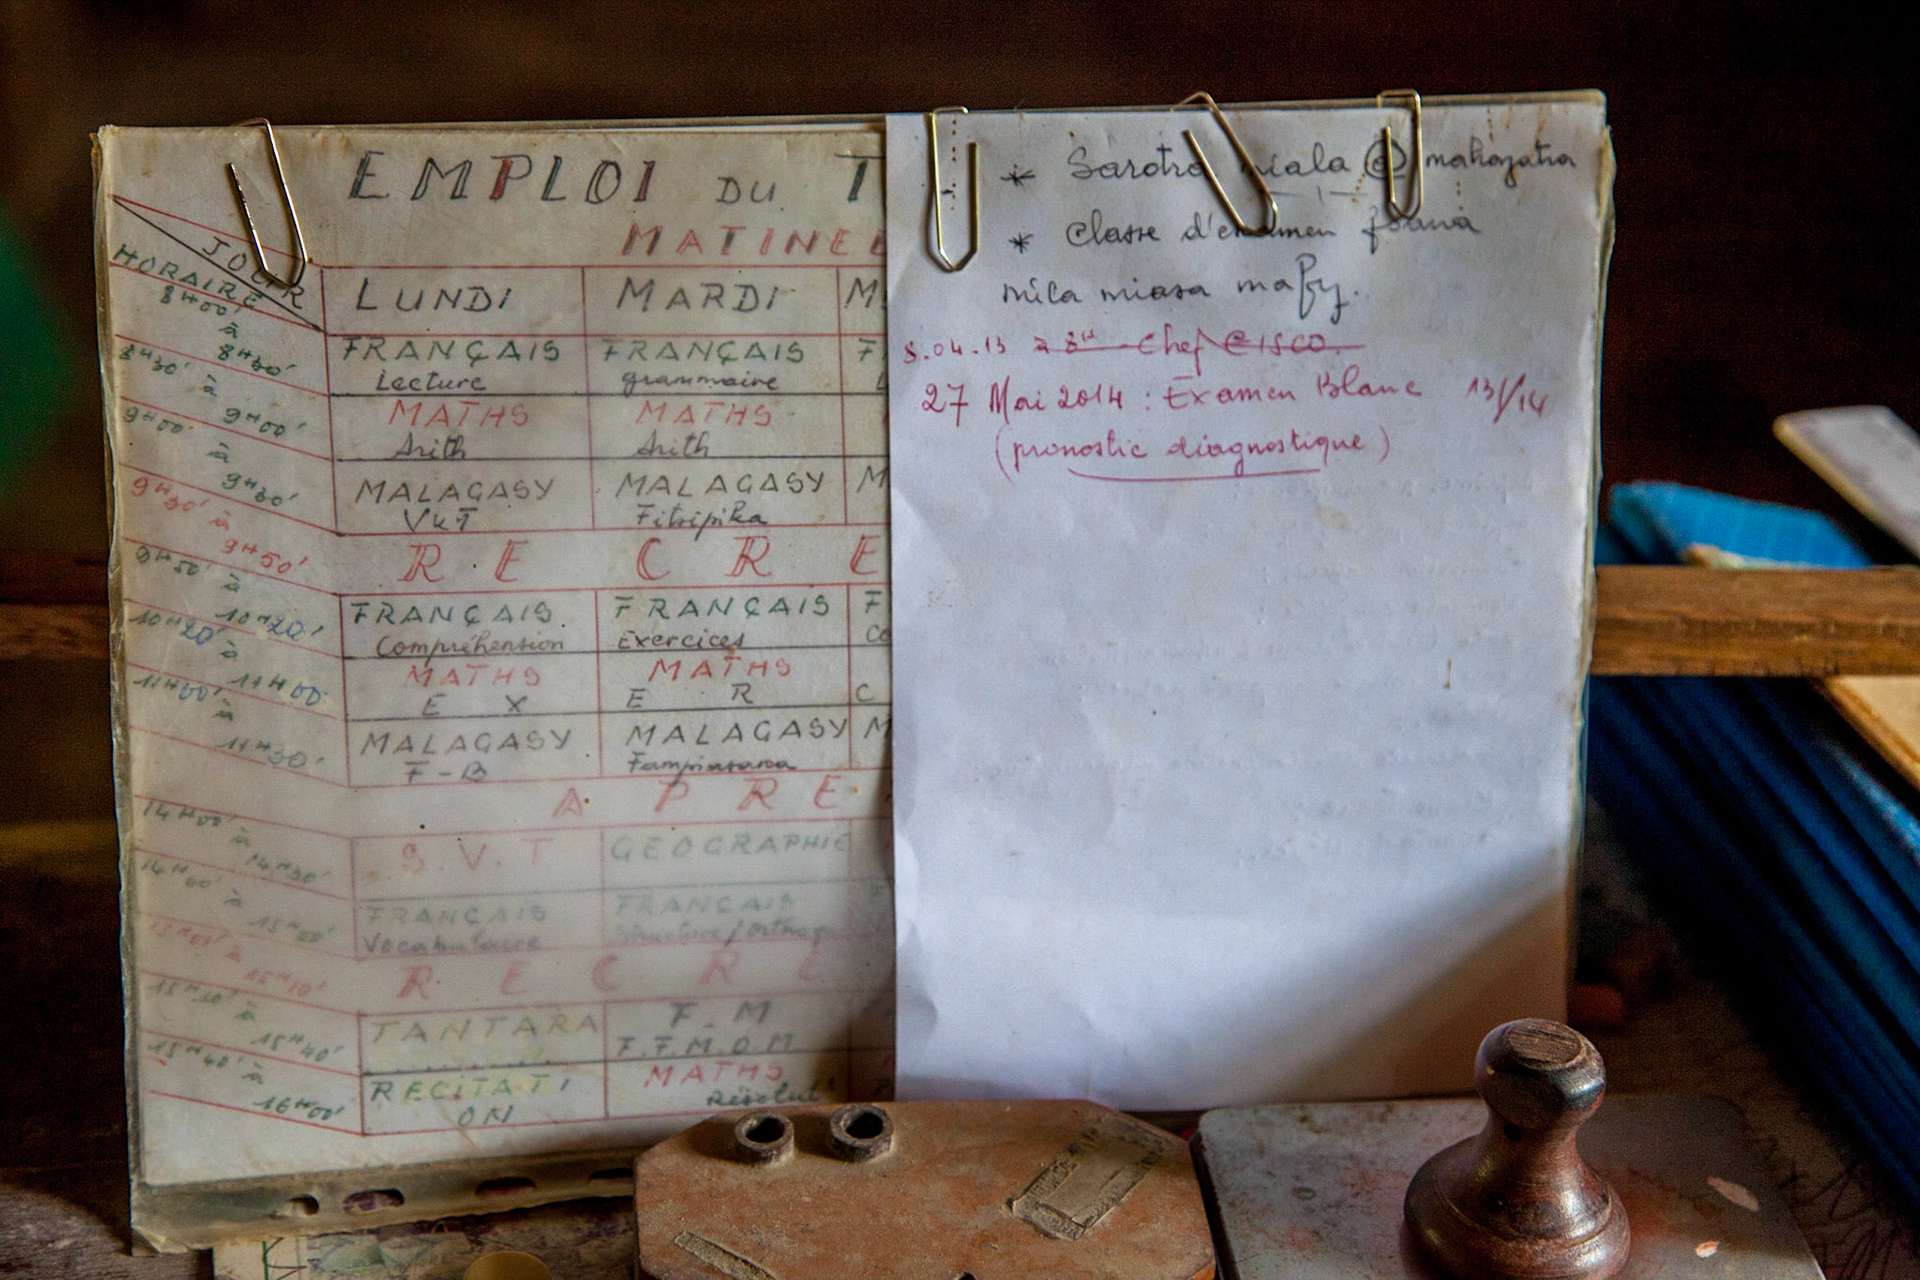 EMPLOI DU T
MATINE
JOUR
HORAIRE
LUNDI MARDI M
8H00' à 8H30'
FRANÇAIS FRANÇAIS F
Lecture grammaire L
8H30' à 9H00'
MATHS MATHS
Arith Arith
9H00' à 9H30'
MALAGASY MALAGASY M
VKT Fitsipika
9H30' à 9H50'
R E C R E
9H50' à 10H20'
FRANÇAIS FRANÇAIS F
Compréhension Exercices Co
10H20' à 11H00
MATHS MATHS
E X E R C
11H00' à 11H30'
MALAGASY MALAGASY M
F-B Fampiasana
A P R E
14H00' à 14H30'
S.V.T GEOGRAPHIE
à 15H00'
FRANÇAIS FRANÇAIS F
Vocabulaire Structure/
à 15H10'
R E C R E
15H10' à 15H40'
TANTARA F.M
F.F.M.O.M
15H40' à 16H00'
RECITATI MATHS
ON Résolut°
* Sarotra miala @ mahazatra
* Classe d'examen foana
mila miasa mafy.
8.04.13 à 8H Chef CISCO.
27 Mai 2014 : Examen Blanc 13/14
(pronostic diagnostique)